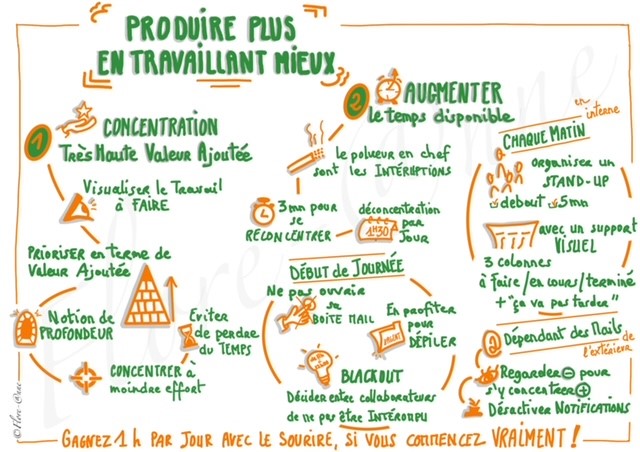 PRODUIRE PLUS
EN TRAVAILLANT MIEUX
1
CONCENTRATION
Très Haute Valeur Ajoutée
Visualiser le Travail
à FAIRE
PRIORISER en terme de
Valeur Ajoutée
Notion de
PROFONDEUR
Eviter
de perdre
du TEMPS
CONCENTRER à
moindre effort
2
AUGMENTER
le temps disponible
le pollueur en chef
sont les INTERUPTIONS
3mn pour
se
RECONCENTRER
déconcentration
1H30 par
Jour
DÉBUT de JOURNÉE
Ne pas ouvrir
sa
BOITE MAIL
En profiter
pour
DÉPILER
URGENT
BLACKOUT
Décider entre collaborateurs
de ne pas être INTEROMPU
en interne
CHAQUE MATIN
organiser un
STAND-UP
debout 5mn
avec un support
VISUEL
3 colonnes
à faire/en cours/terminé
+ "ça va pas tarder"
Dépendant des Mails
de l'extérieur
Regarder - pour
s'y concentrer +
Désactiver NOTIFICATIONS
GAGNEZ 1h PAR JOUR AVEC LE SOURIRE, SI VOUS COMMENCEZ VRAIMENT !